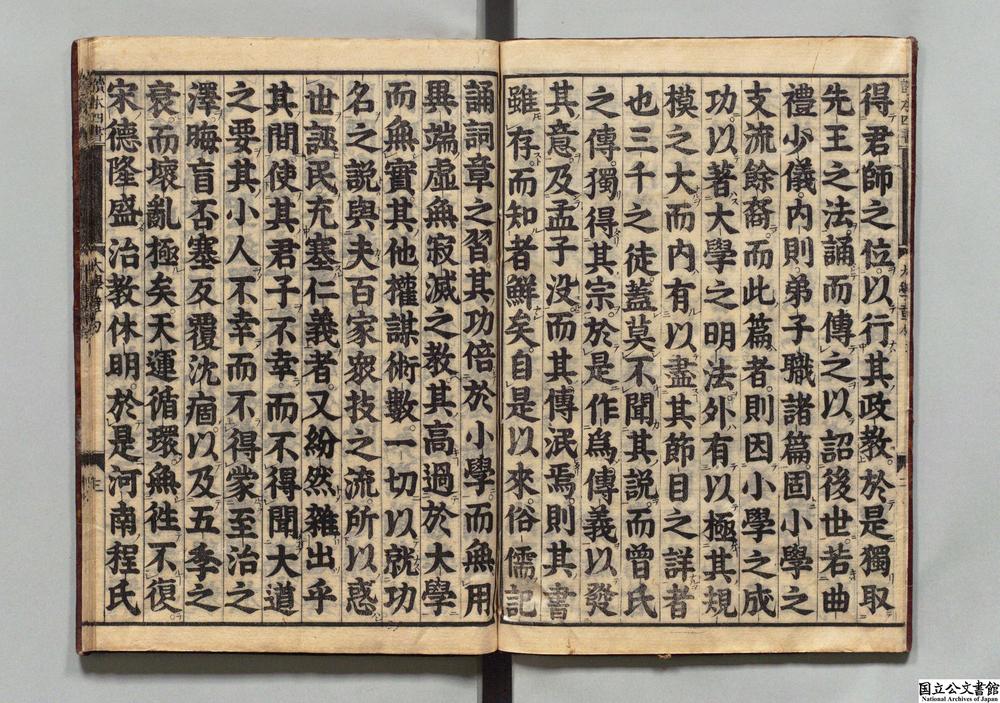 得君師之位。以行其政教。於是獨取
先王之法。誦而傳之。以詔後世。若曲
禮少儀内則弟子職諸篇。固小學之
支流餘裔。而此篇者。則因小學之成
功。以著大學之明法。外有以極其規
模之大。而内有以盡其節目之詳者
也三千之徒。蓋莫不聞其説。而曾氏
之傳。獨得其宗。於是作爲傳義。以發
其意。及孟子没而其傳泯焉。則其書
雖存。而知者鮮矣。自是以來。俗儒記
誦詞章之習。其功倍於小學。而無用
異端虚無寂滅之教。其高過於大學
而無實。其他權謀術數。一切以就功
名之説。與夫百家衆技之流。所以惑
世誣民。充塞仁義者。又紛然雜出乎
其間。使其君子不幸而不得聞大道
之要。其小人不幸而不得蒙至治之
澤。晦盲否塞。反覆沈痼。以及五季之
衰。而壞亂極矣。天運循環。無徃不復
宋德隆盛。治教休明。於是河南程氏
国立公文書館
National Archives of Japan